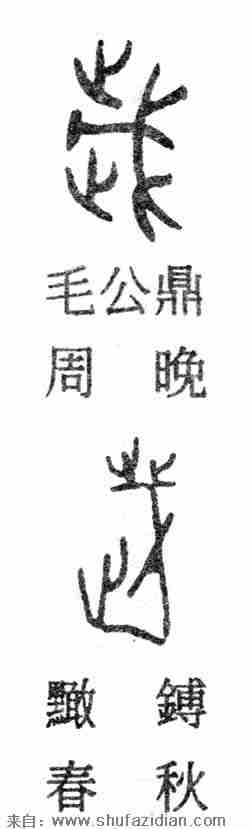 毛公鼎
周 晚
鎛
春 秋
来自：www.shufazidian.com